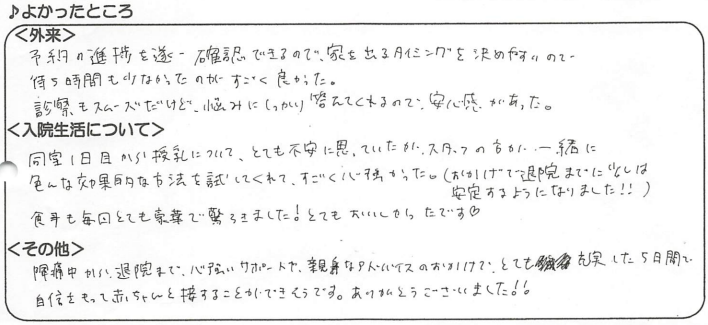 ♪よかったところ
<外来>
予約の進捗を逐一確認できるので、家を出るタイミングを決めやすいので
待ち時間も少なかったのがすごく良かった。
診察もスムーズだけど、悩みにしっかり答えてくれるので、安心感があった。
<入院生活について>
同室1日目から授乳について、とても不安に思っていたが、スタッフの方が一緒に
色んな効果的な方法を試してくれて、すごく心強かった。(おかげで退院までに少しは
安定するようになりました!!)
食事も毎回とても豪華で驚きました!とてもおいしかったです♡
<その他>
陣痛中から、退院まで、心強いサポートや、親身なアドバイスのおかげで、とても充実した5日間で
自信をもって赤ちゃんと接することができそうです。ありがとうございました!!